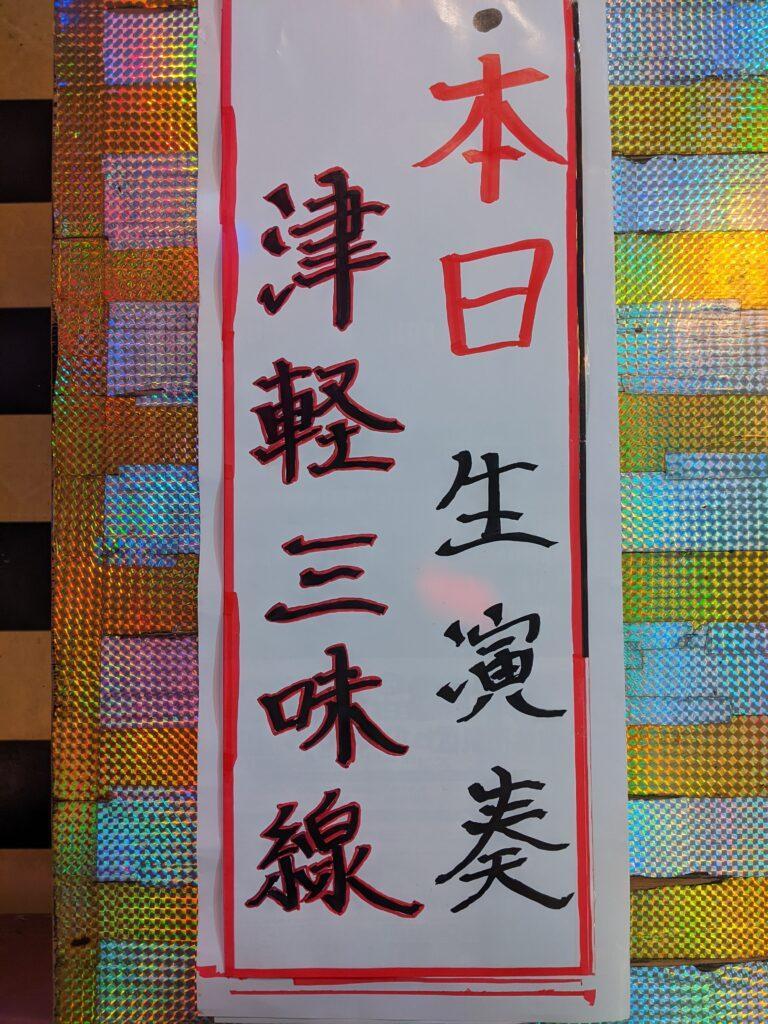 本日生演奏
津軽三味線